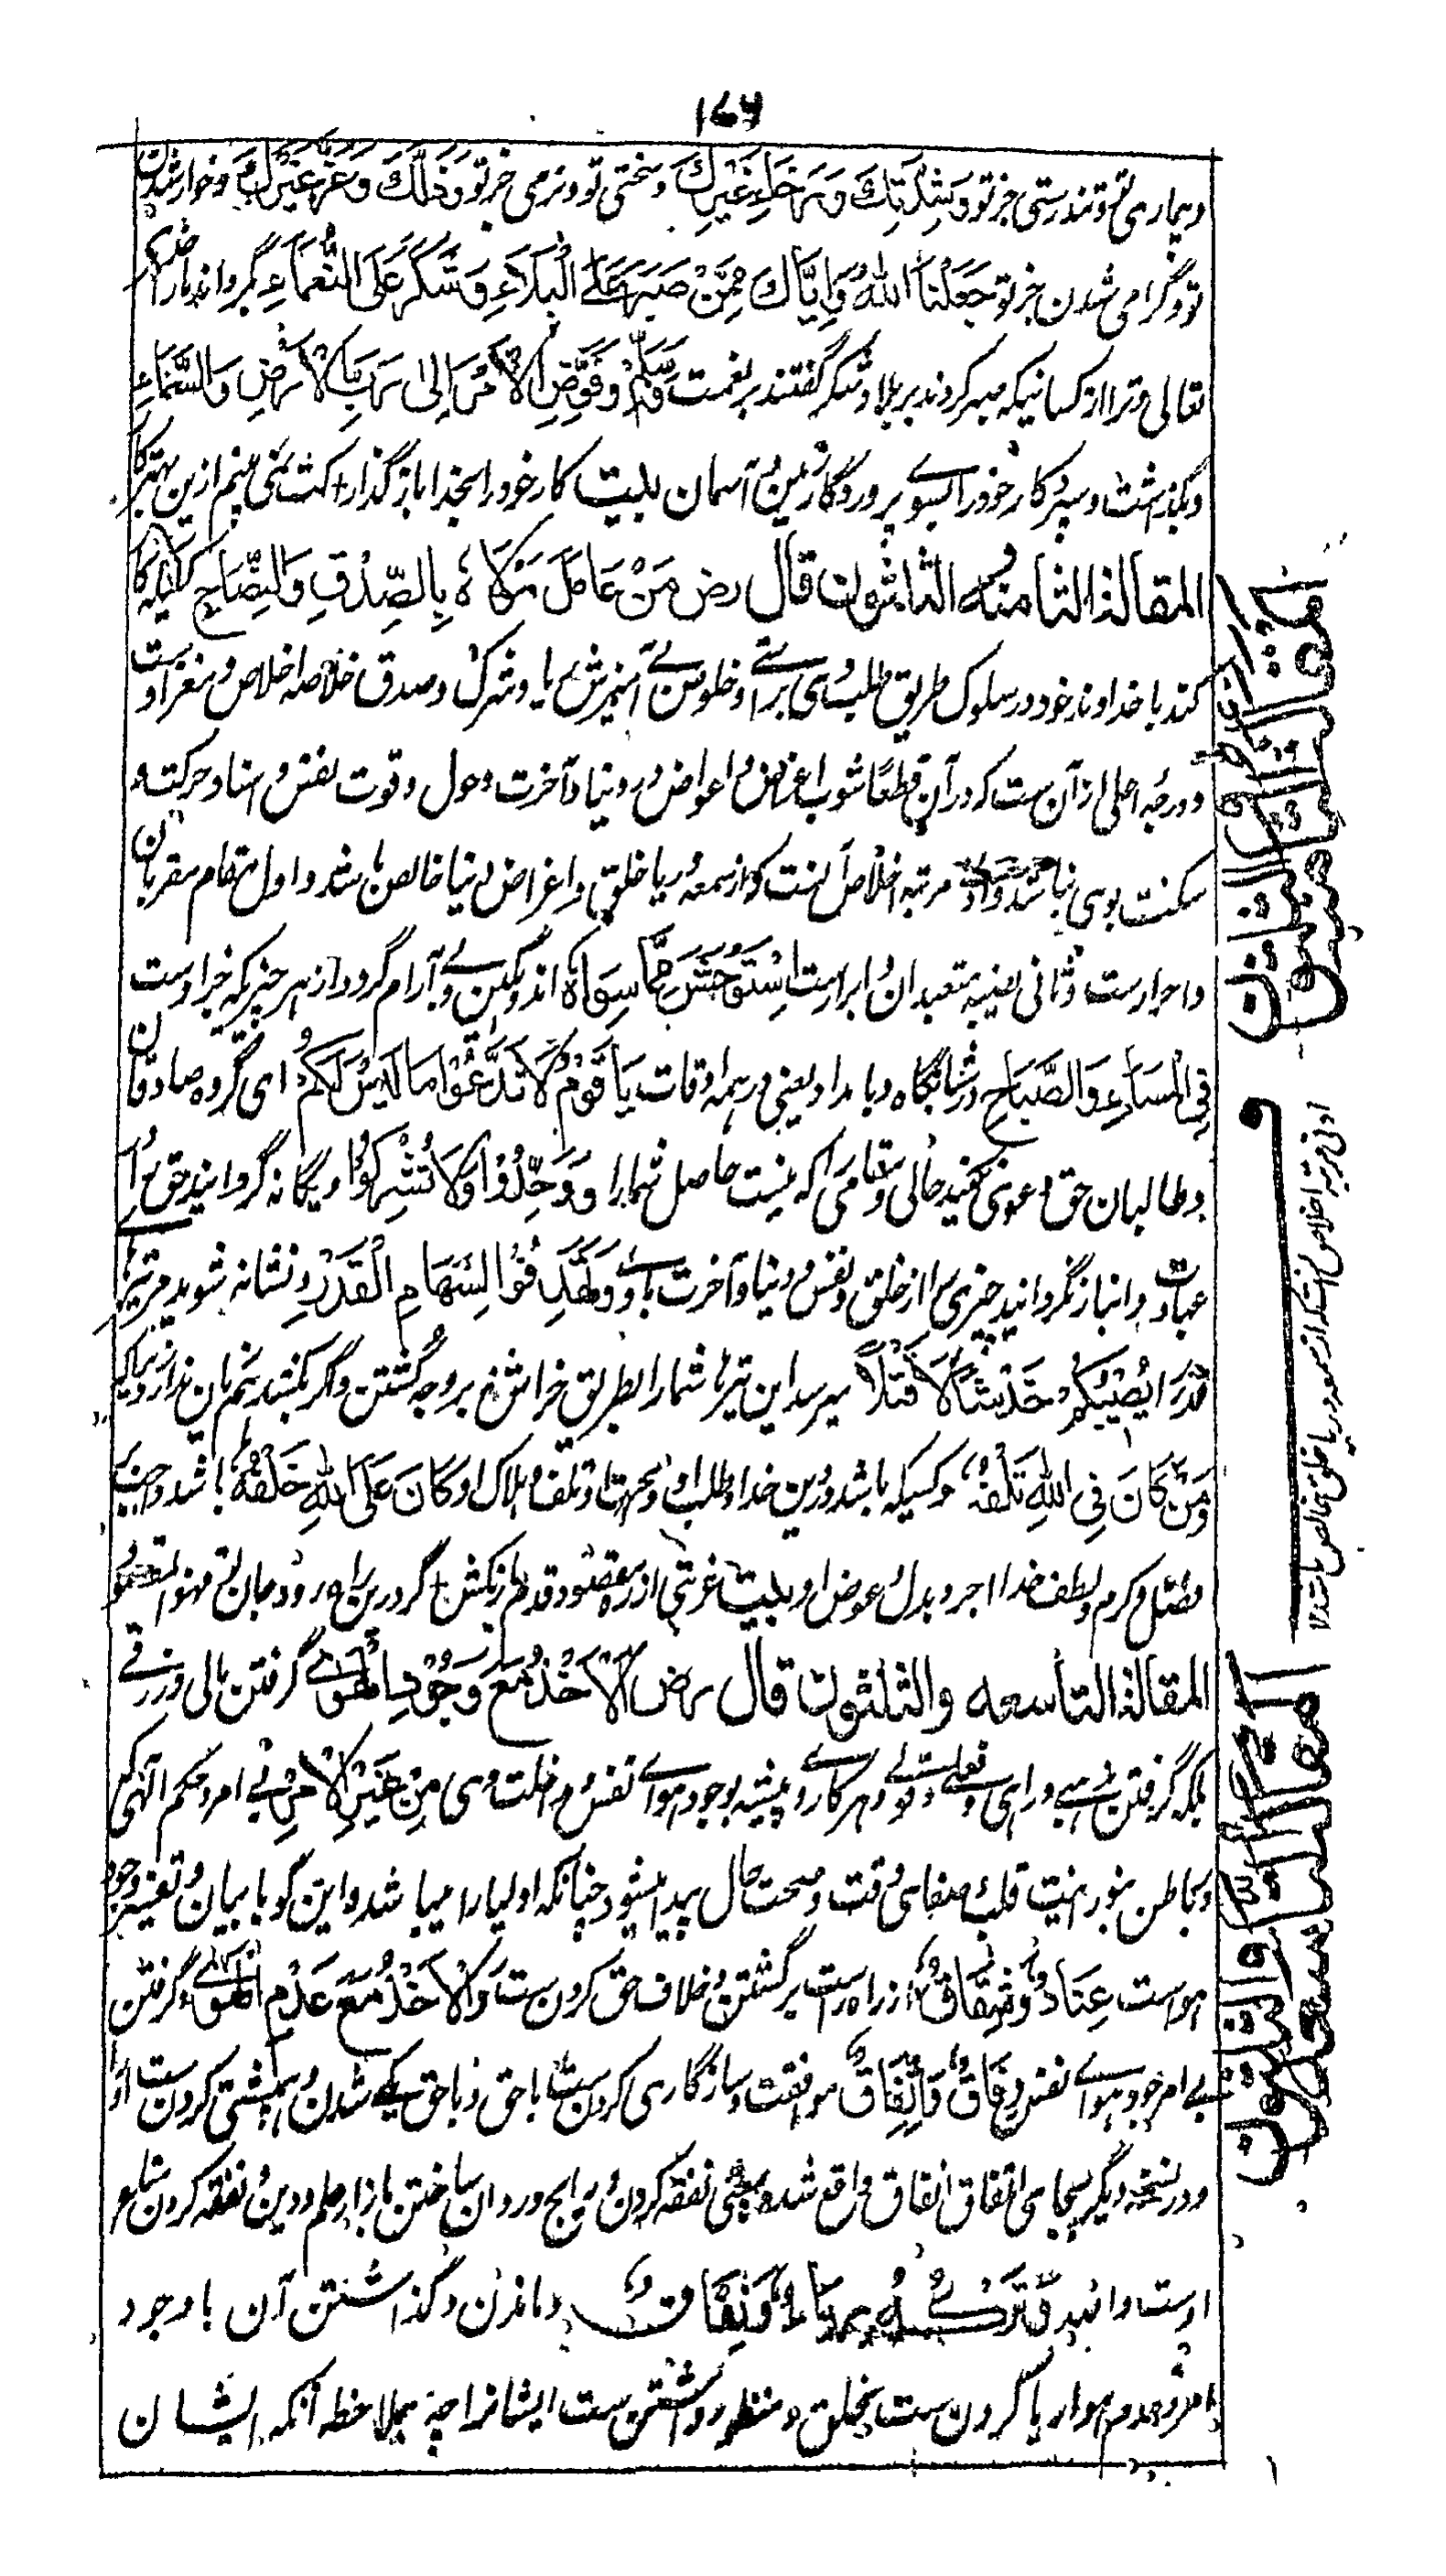 ۱۷۶
و بیماری تو و تندرستی جز تو وَشِدَّتِكَ وَرَخَاءِ غَیْرِكَ و سختی تو و نرمی جز تو وَذُلِّكَ وَعِزِّ غَیْرِكَ و خوار شدن
تو و گرامی شدن جز تو جَعَلَنَا اللّٰهُ وَاِیَّاكَ مِمَّنْ صَبَرَ عَلَی الْبَلَاءِ وَشَكَرَ عَلَی النَّعْمَاءِ بگرداند ما را خدای
تعالی و ترا از کسانیکه صبر کردند بر بلا و شکر گفتند بر نعمت وَسَلَّمَ وَفَوَّضَ الْاَمْرَ اِلٰی رَبِّ الْاَرْضِ وَالسَّمَاءِ
و بگذاشت و سپرد کار خود را بسوی پروردگار زمین و آسمان بیت کار خود را بخدا باز گذار کت نمی بینم ازین بهتر کار
المقالة الثامنه الثلثون قال رض مَنْ عَامَلَ مَوْلَاهُ بِالصِّدْقِ وَالنِّصَاحِ کسیکه کار
کند با خداوند خود در سلوک طریق طلب وی براستی و خلوص بی آمیزش ریا و شرک و صدق خلاصه اخلاص و مغز اوست
و درجه اعلی از آن ست که در آن قطعًا شوب اغراض و اعواض در دنیا و آخرت و حول و قوت نفس و اسناد حرکت و
سکنت بوی نباشد و ادنی مرتبه اخلاص آنست که از سمعه و ریا خلق و اغراض دنیا خالص باشد و اول مقام مقربان
و احرارست و ثانی نصیبه متعبدان و ابرارست اِسْتَوْحَشَ مِمَّا سِوَاهُ اندوهگین و بی آرام گردد از هر چیزیکه جز اوست
فِی الْمَسَاءِ وَالصَّبَاحِ در شبانگاه و بامداد یعنی در همه اوقات یَا قَوْمُ لَا تَدَّعُوْا مَا لَیْسَ لَكُمْ ای گروه صادقان
و طالبان حق دعوی نکنید حالی و مقامی را که نیست حاصل شما را وَوَحِّدُوْا وَلَا تُشْرِكُوْا و یگانه گردانید حق را
عبادت و انباز نگردانید چیزی را از خلق و نفس و دنیا و آخرت باوی وَتَهَدَّفُوْا لِسِهَامِ الْقَدَرِ و نشانه شوید مر تیرهای
قدر را یُصِیْبُكُمْ خَدْشًا لَا قَتْلًا میرسد این تیرها شما را بطریق خراش نه بر وجه کشتن و اگر بکشد
وَمَنْ كَانَ فِی اللّٰهِ تَلَفُهُ و کسیکه باشد در دین خدا و طلب او و محبت او تلف و هلاک او كَانَ عَلَی اللّٰهِ خَلَفُهُ باشد واجب
بفضل و کرم و لطف خدا اجر و بدل و عوض او بیت غرقی از ره مقصود قدم باز مکش گر درین راه رود جان تو
المقالة التاسعه والثلثون قال رض اَلْاَخْذُ مَعَ وُجُوْدِ الْهَوٰی گرفتن مالی و رزقی
بلکه گرفتن و فعلی و قولی و هر کاری و پیشه بوجود هوای نفس و مداخلت وی مِنْ غَیْرِ الْاَمْرِ بی امر و حکم الهی که
و باطن بنورانیت قلب و صفای وقت و صحت حال پیدا میشود چنانکه اولیا را میباشد و این گویا بیان و تفسیر وجود
هواست عِنَادٌ وَشِقَاقٌ از راه راست برگشتن و خلاف حق کردن ست وَالْاَخْذُ مَعَ عَدَمِ الْهَوٰی و گرفتن
بی امر وجود هوای نفس وِفَاقٌ وَاتِّفَاقٌ موافقت و سازگاری کردن ست با حق و با حق یکی شدن و همپشتی کردن ست
و در نسخه دیگر بجای اتفاق انفاق واقع شده بمعنی نفقه کردن و رایج و روان ساختن بازار علم و دین و نفقه کردن
اوست وَتَرْكُهُ رِیَاءٌ وَنِفَاقٌ و ماندن و گذاشتن آن با وجود
امر و عدم هوا ریا کردن ست بخلق و منظور داشتن ست ایشانرا چه بملاحظه آنکه ایشان
المقالة الثامنة والثلثون
ادنی مرتبه اخلاص آنست که از سمعه و ریا خلق خالص باشد ۱۲
المقالة التاسعة والثلثون